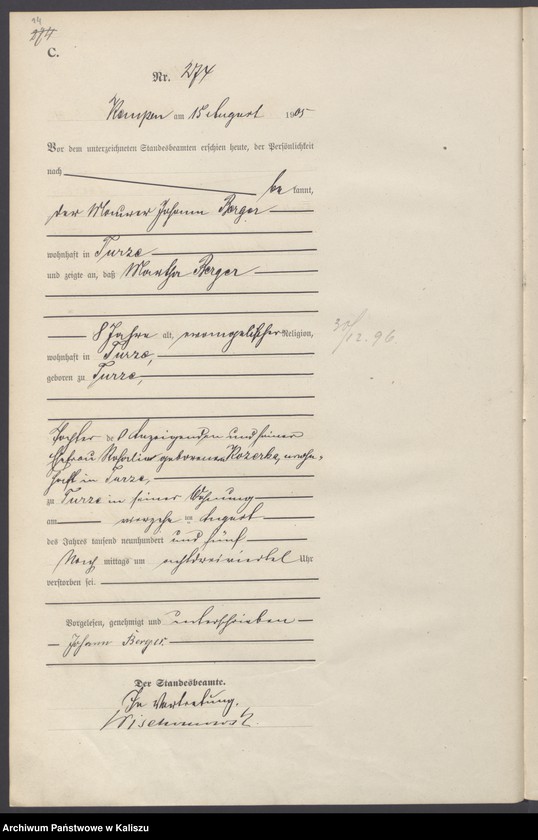 274
C.
Nr. 274
Kempen am 15 August 1905
Vor dem unterzeichneten Standesbeamten erschien heute, der Persönlichkeit
nach
be kannt,
der Maurer Johann Berger
wohnhaft in Turze
und zeigte an, daß Martha Berger
8 Jahre alt, evangelischer Religion,
wohnhaft in Turze,
geboren zu Turze,
Tochter des Anzeigenden und seiner
Ehefrau Rosalie geborenen Kozerka, wohn-
haft in Turze,
zu Turze in seiner Wohnung
am vierzehnten August
des Jahres tausend neunhundert und fünf
Nach mittags um achtdreiviertel Uhr
verstorben sei.
Vorgelesen, genehmigt und unterschrieben
Johann Berger
Der Standesbeamte.
In Vertretung.
30/12.96
Archiwum Państwowe w Kaliszu